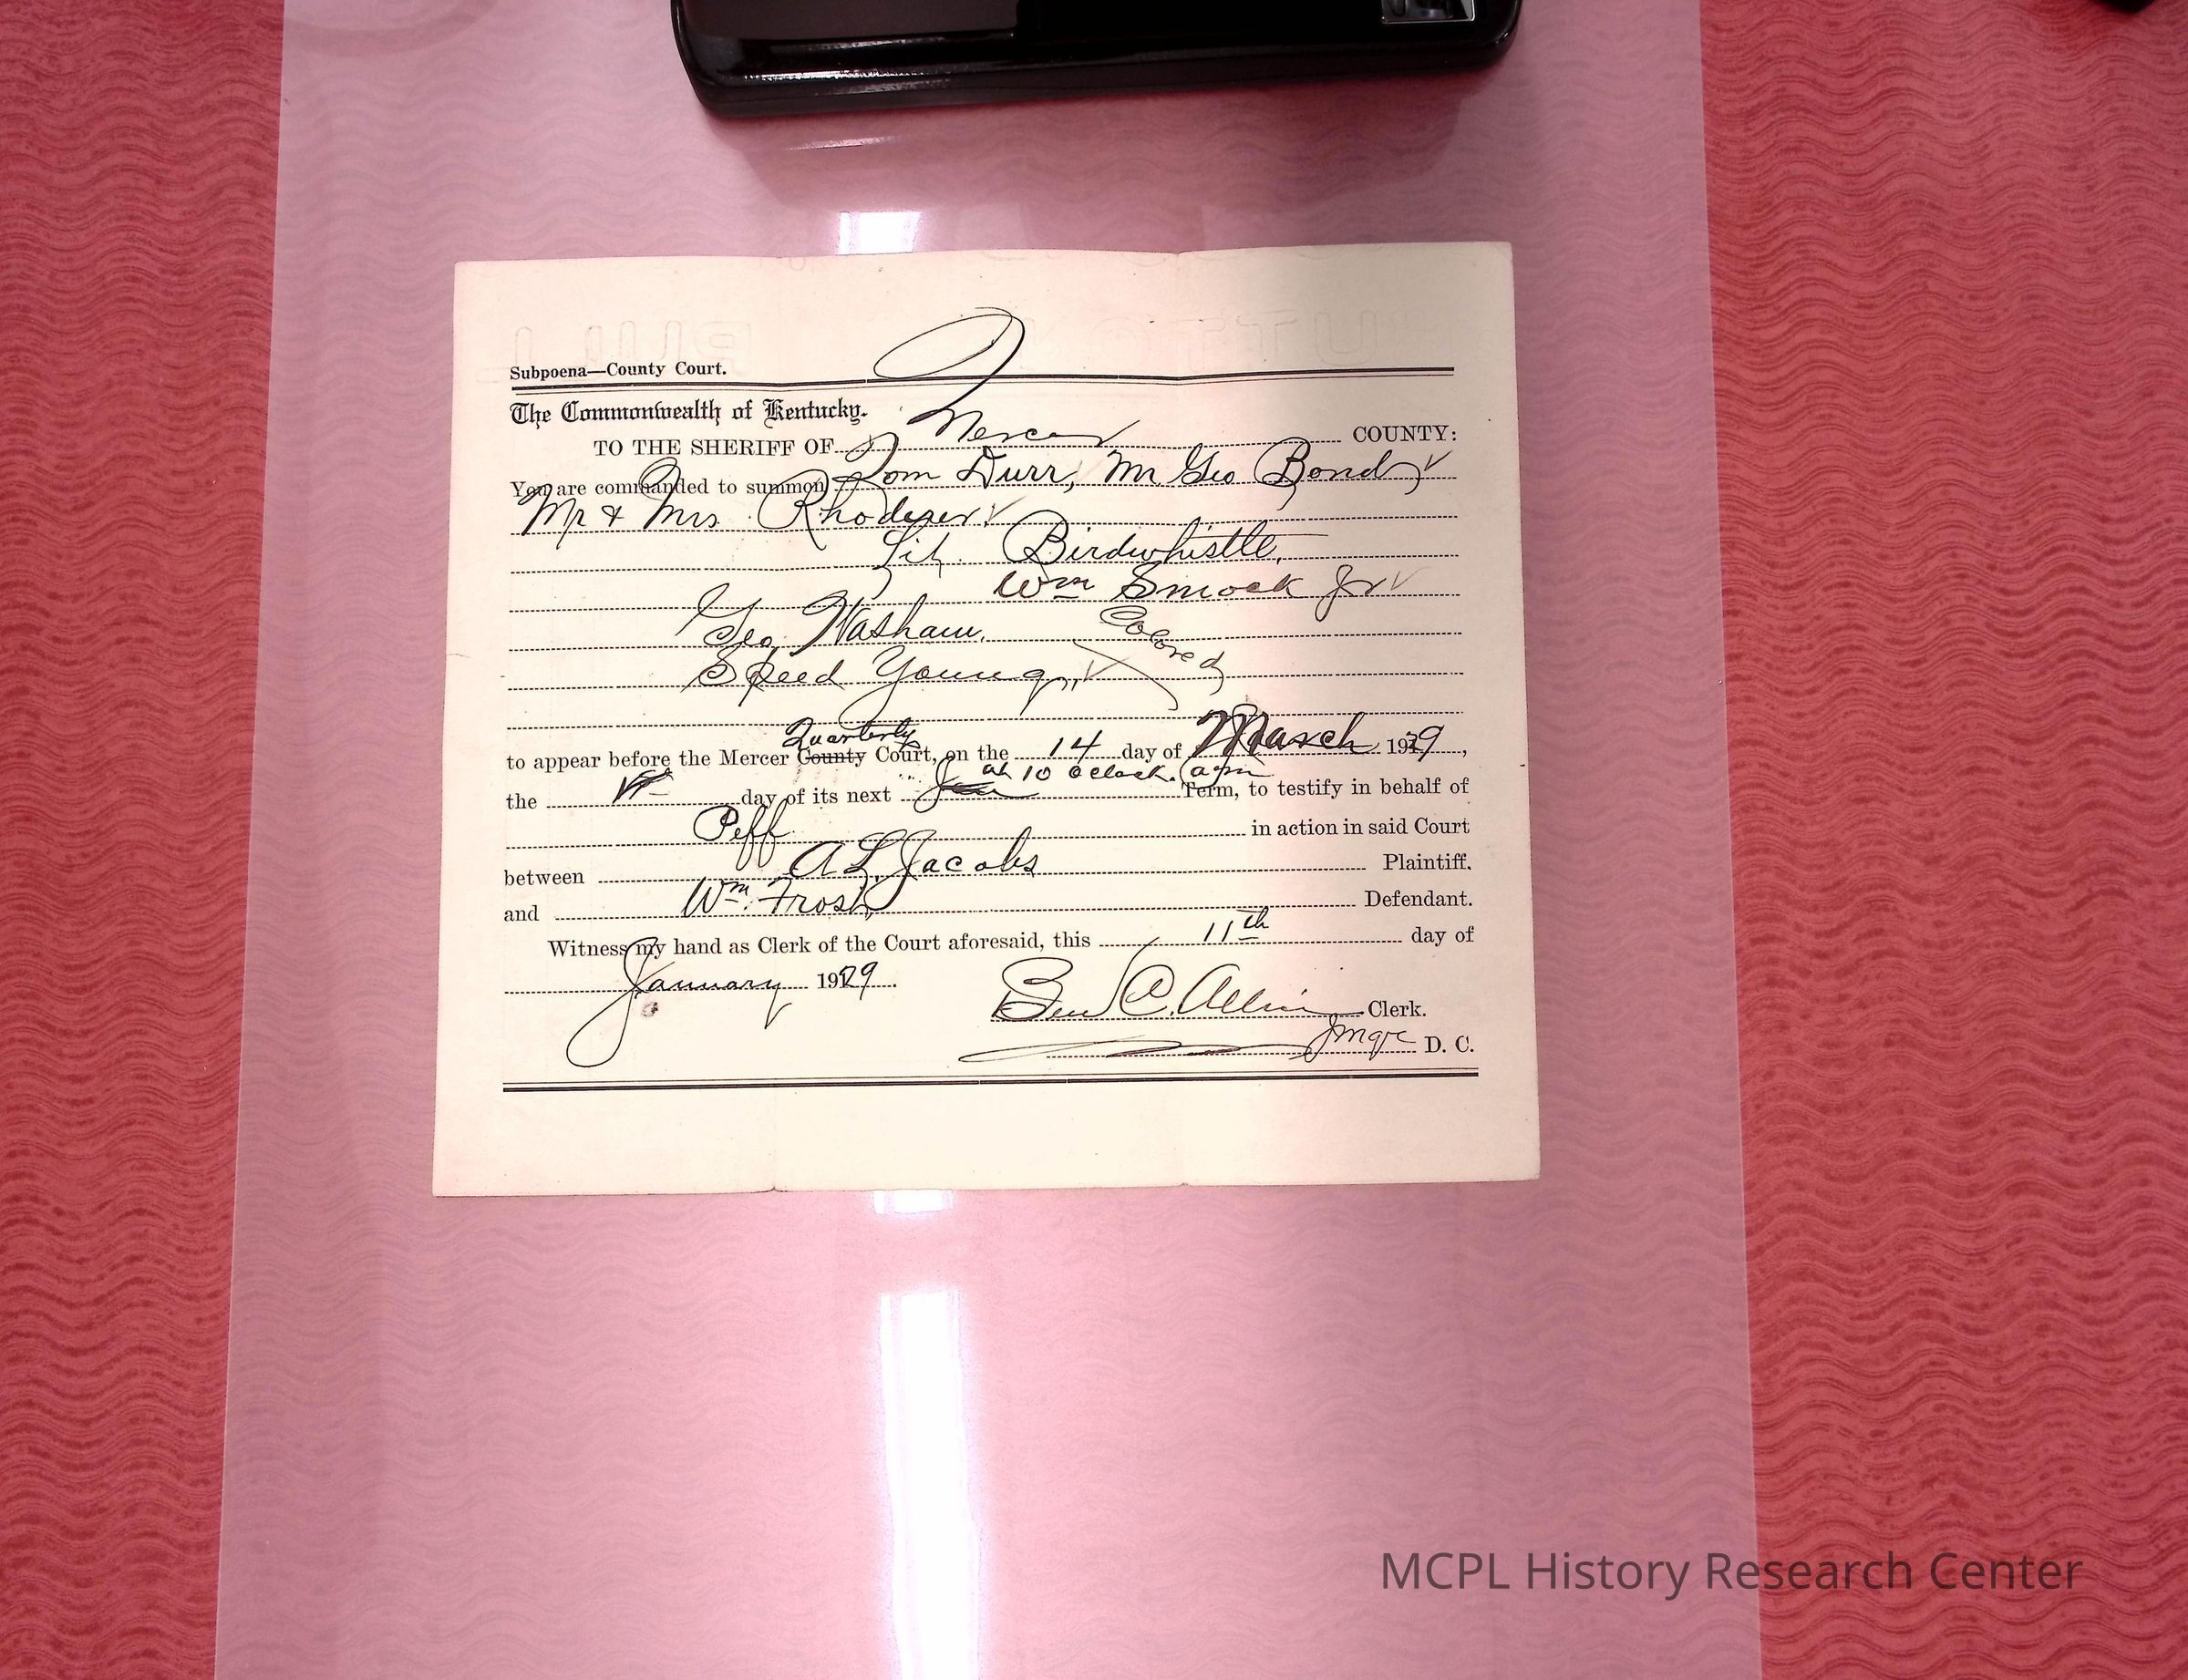 Subpoena—County Court.
The Commonwealth of Kentucky.
TO THE SHERIFF OF Mercer COUNTY:
You are commanded to summon Tom Durr, Mr Geo Bond
Mr & Mrs Rhodeser
Birdwhistle,
Wm Smock Jr
Geo. Washam, Colored
Speed Young,
Quarterly
to appear before the Mercer County Court, on the 14 day of March 1929,
at 10 oclock. a m
the day of its next Term, to testify in behalf of
Peff in action in said Court
between A L Jacobs Plaintiff.
and Wm. Frost Defendant.
Witness my hand as Clerk of the Court aforesaid, this 11th day of
January 1929.
Ben C. Allin Clerk.
D. C.
MCPL History Research Center